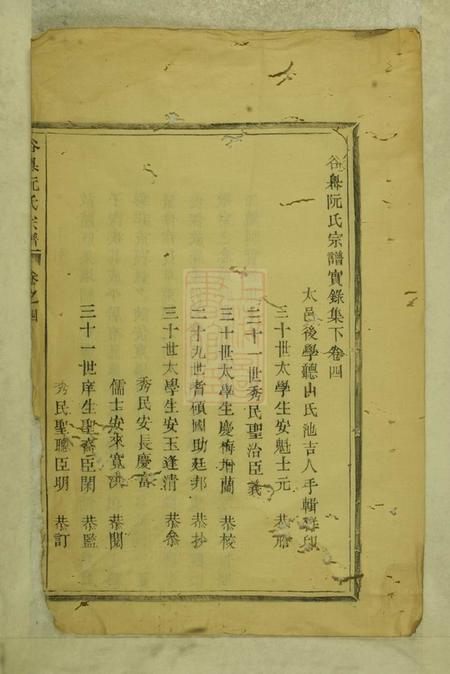 谷槼阮氏宗譜實錄集下卷四
太邑後學聽山氏池吉人手輯謹
三十世太學生安魁士元 恭膽
三十一世秀民聖治臣義
三十世太學生慶梅增蘭 恭核
二十九世耆碩國助廷邦 恭抄
三十世太學生安玉逢清 恭叅
秀民安長慶富
儒士安來寬洪 恭閱
三十一世庠生聖齋臣閑 恭監
秀民聖聰臣明 恭訂
阮氏宗譜 卷之四